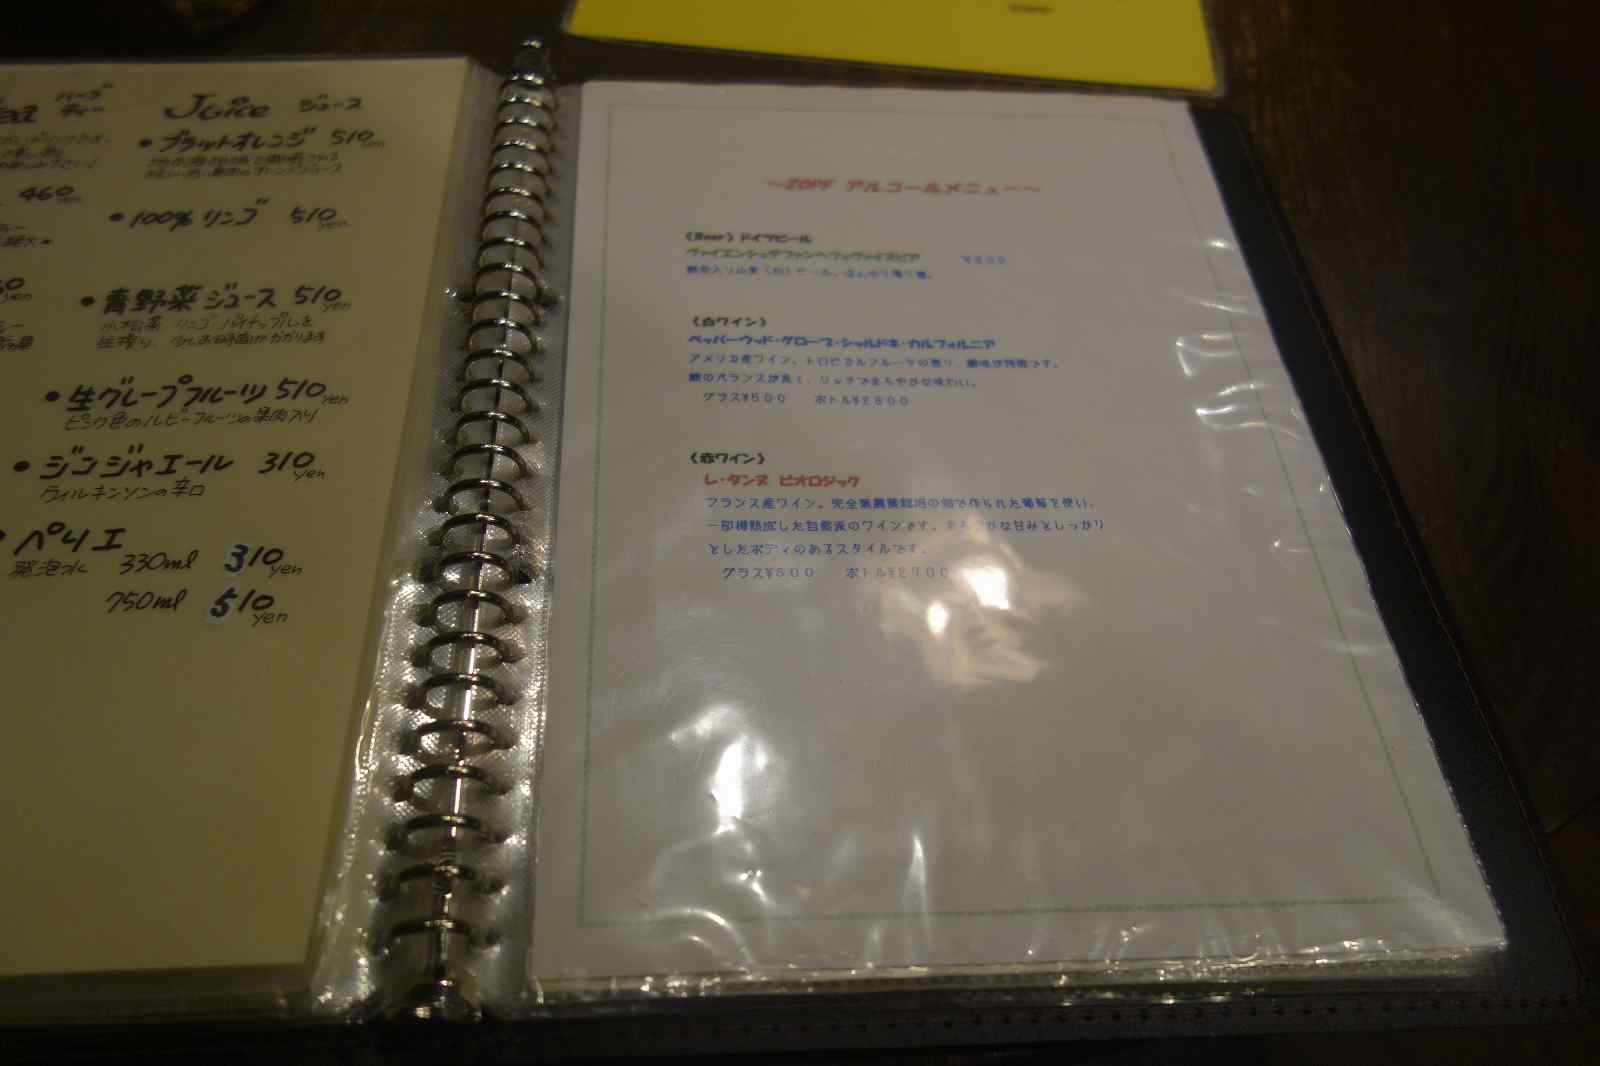 ハーブ
ティー
460 yen
Juice ジュース
• ブラットオレンジ 510 yen
• 100% リンゴ 510 yen
• 青野菜ジュース 510 yen
小松菜 リンゴ パイナップルを
生搾り、少しお時間かかります
• 生グレープフルーツ 510 yen
ピンク色のルビーフルーツの果肉入り
• ジンジャエール 310 yen
ウィルキンソンの辛口
• ペリエ
発泡水 330ml 310 yen
750ml 510 yen
～ZOPF アルコールメニュー～
《Beer》ドイツビール
ヴァイエンシュテファンヘフェヴァイスビア
《白ワイン》
ペッパーウッド・グローブ・シャルドネ・カルフォルニア
アメリカ産ワイン。トロピカルフルーツの香り、酸味が特徴です。
酸のバランスが良く、リッチでまろやかな味わい。
グラス¥500 ボトル¥2800
《赤ワイン》
レ・タンヌ ビオロジック
フランス産ワイン。完全無農薬栽培の畑で作られた葡萄を使い、
一部樽熟成した自然派のワインです。まろやかな甘みとしっかり
としたボディのあるスタイルです。
グラス¥500 ボトル¥2700